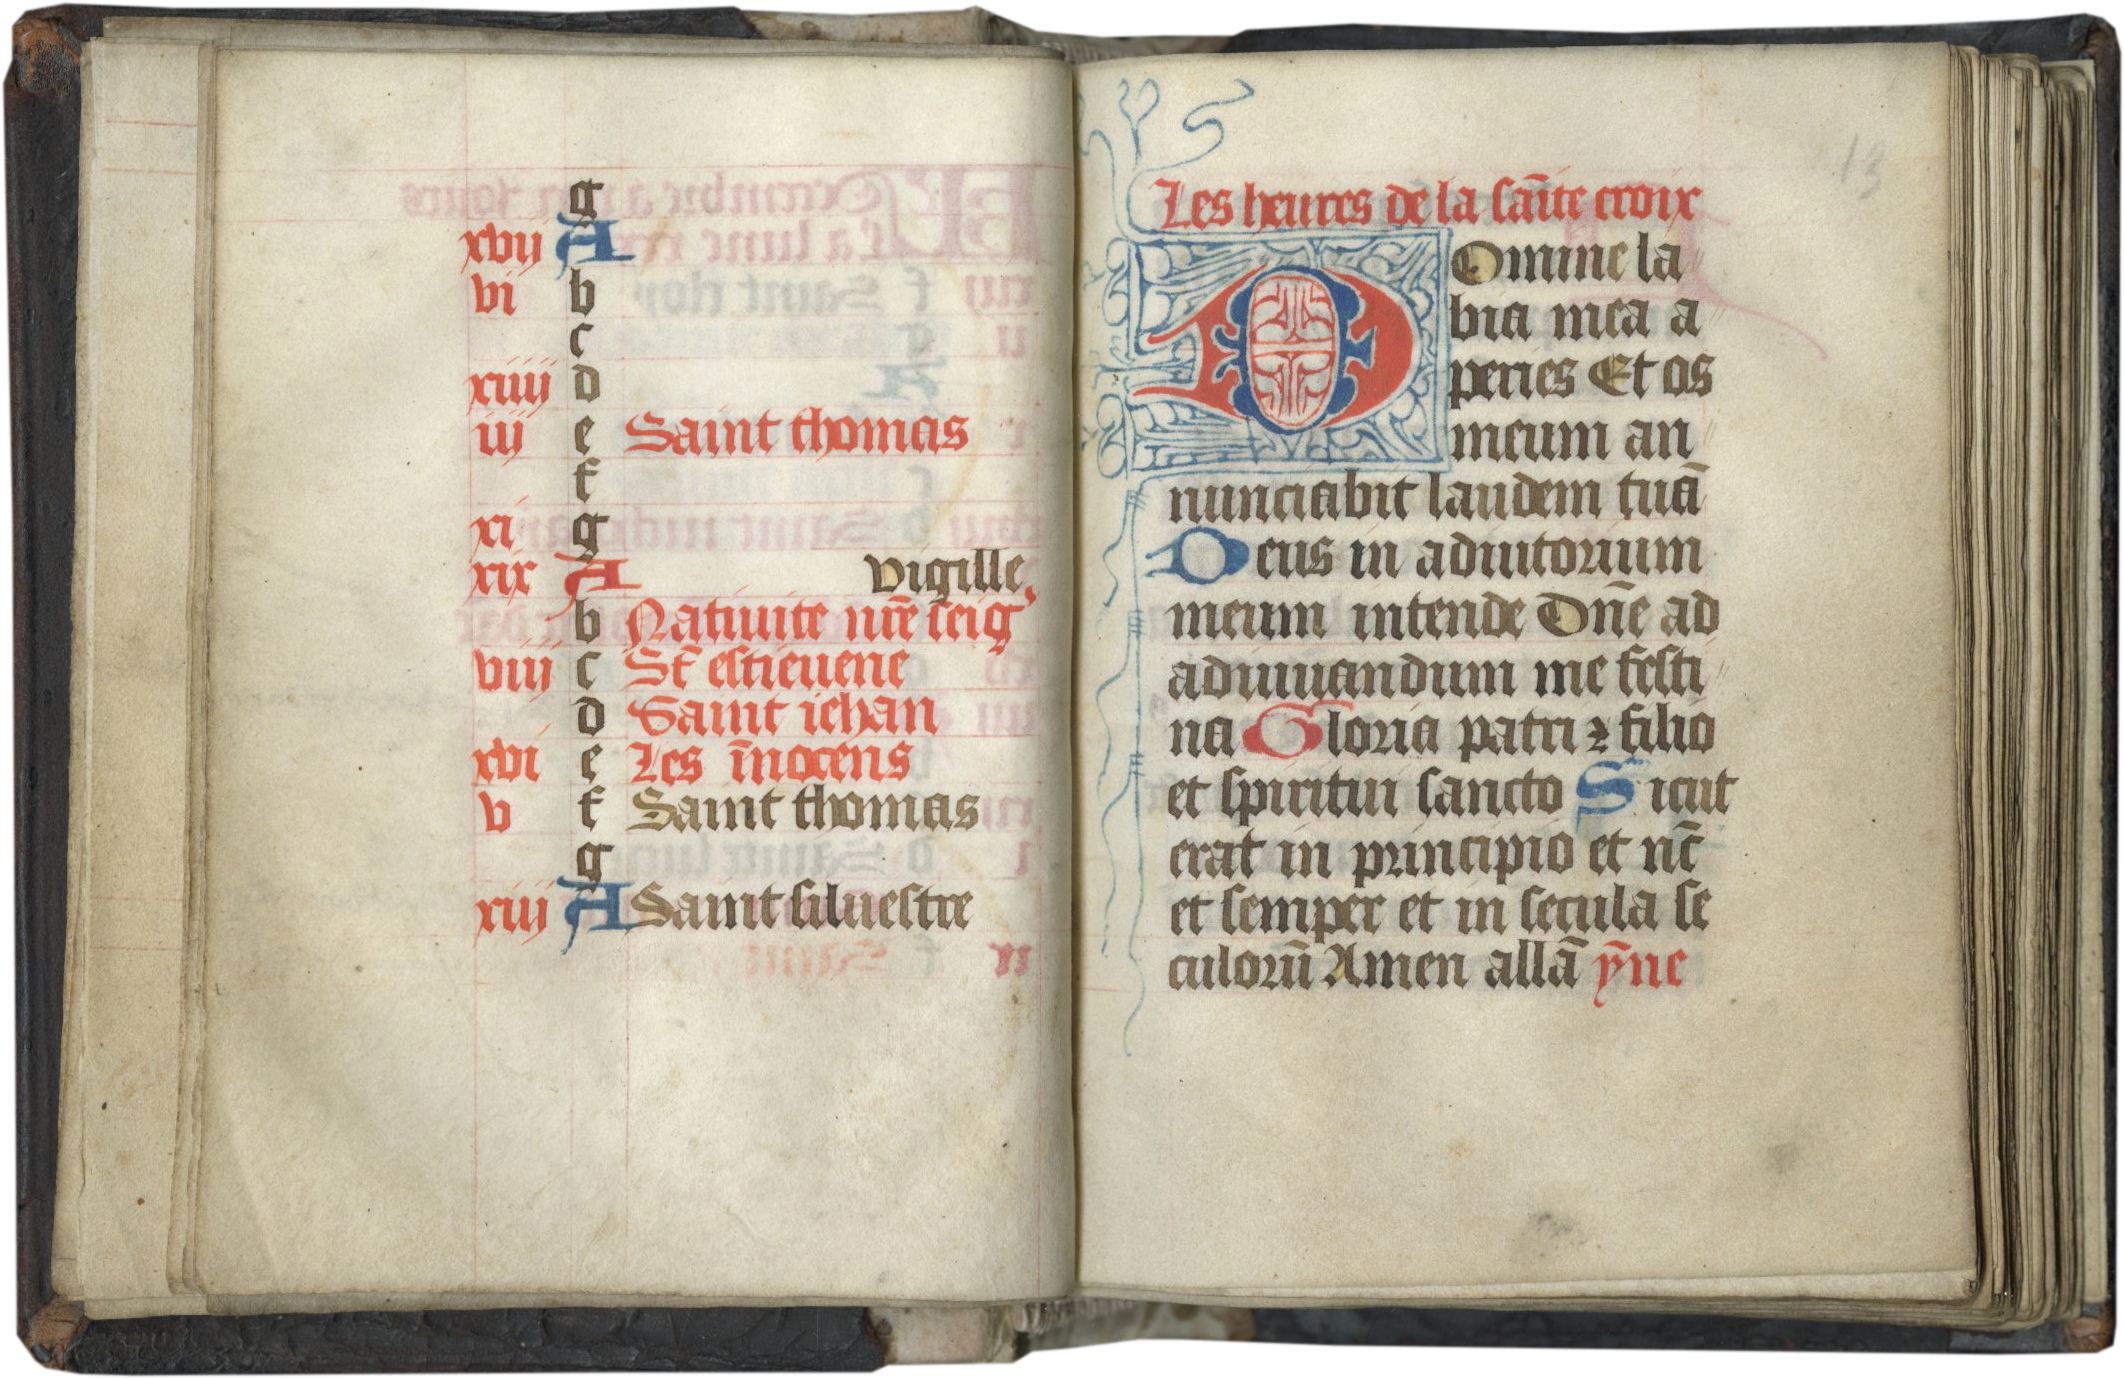 g
xvij A
vi b
c
xiiij d
iij e Saint thomas
f
xi g
xix A vigille
b Natiuite nr̄e seigʼ
viij c St̄ estieuene
d Saint iehan
xvi e Les īnocens
v f Saint thomas
g
xiij A Saint siluestre
13
Les heures de la sāīte croix
Domine la
bia mea a
peries Et os
meum an
nunciabit laudem tuā
Deus in adiutorium
meum intende Dn̄e ad
adiuuandum me festi
na Gloria patri ⁊ filio
et spiritui sancto Sicut
erat in principio et nc̄
et semper et in secula se
culorū Amen allā ȳne